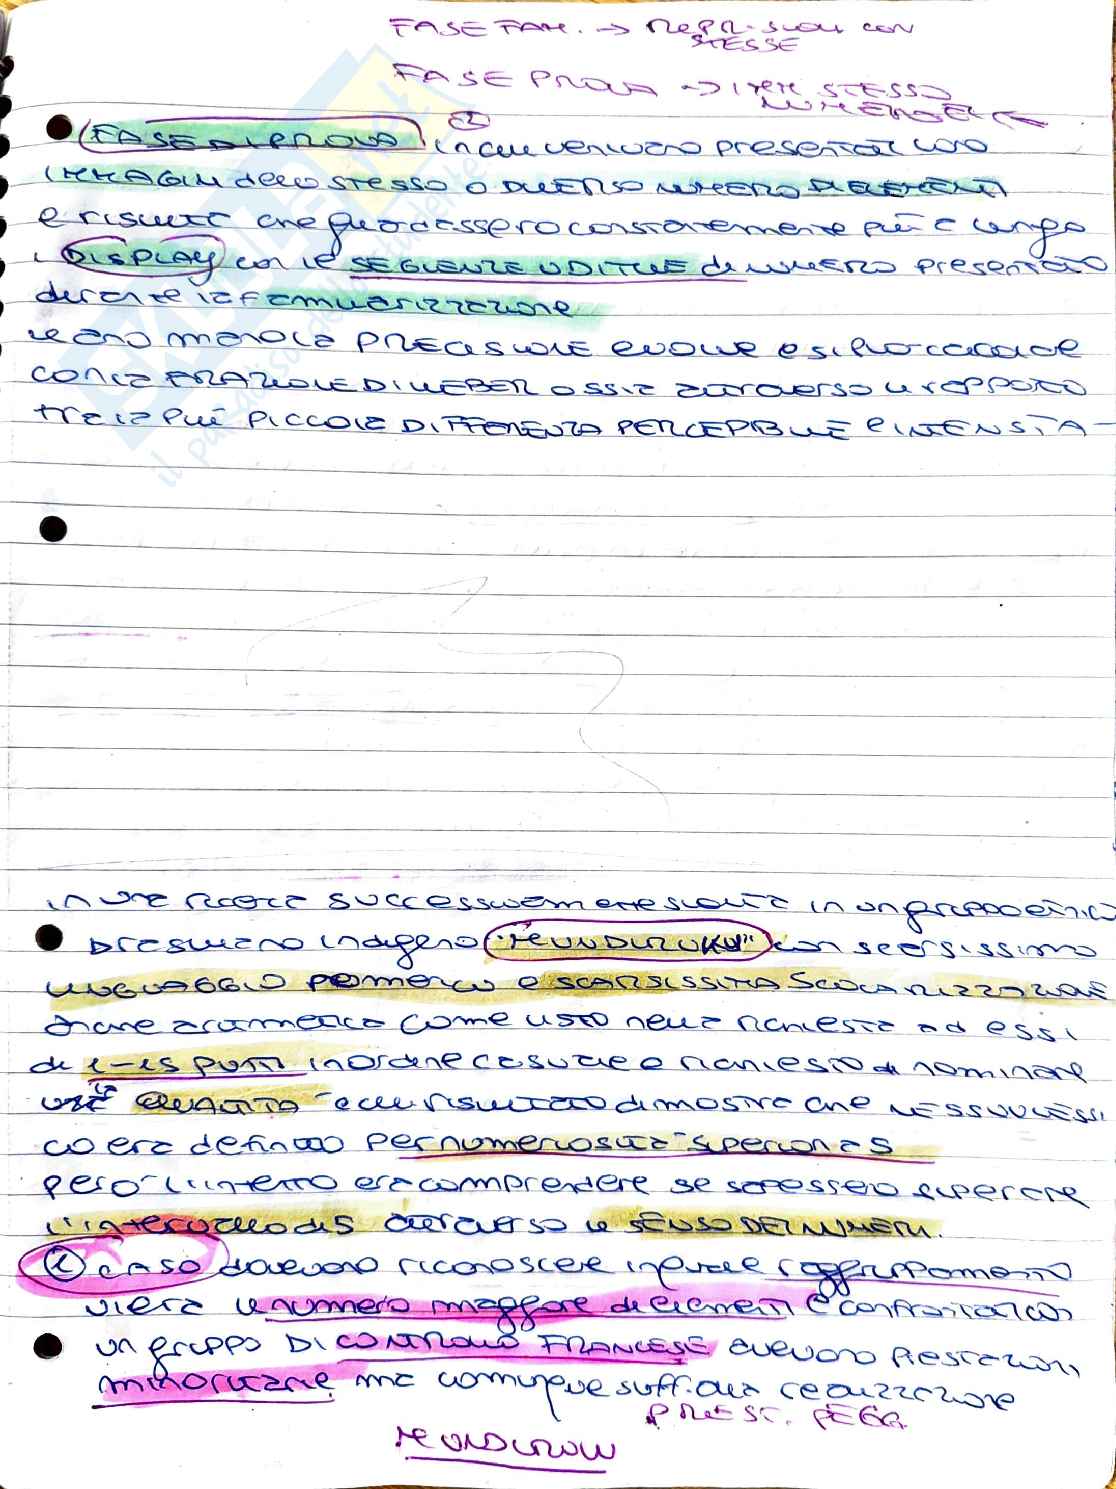 FASE FAM. →
STESSE
FASE PROVA → IMM STESSO
NUMERO E
② FASE DI PROVA in cui venivano presentati loro
IMMAGINI dello STESSO o DIVERSO NUMERO DI ELEMENTI
e risulta che guardassero costantemente più a lungo
i DISPLAY con le SEQUENZE UDITIVE di NUMERO presentato
durante la familiarizzazione
PRECISIONE evolve e si può
con la FRAZIONE DI WEBER ossia attraverso il rapporto
tra la più PICCOLA DIFFERENZA PERCEPIBILE e INTENSITÀ
in una ricerca successivamente svolta in un gruppo etnico
brasiliano indigeno "MUNDURUKU" con scarsissimo
LINGUAGGIO NUMERICO e SCARSISSIMA SCOLARIZZAZIONE
anche aritmetica come visto nella richiesta ad essi
di 1-15 punti in ordine casuale e richiesto di nominare
la QUANTITÀ e il risultato dimostra che NESSUN LESSI
CO era definito per numerosità superiori a 5
però l'intento era comprendere se sapessero superare
l'intervallo di 5 attraverso il SENSO DEI NUMERI.
① CASO dovevano riconoscere in quale raggruppamento
vi era il numero maggiore di elementi e confrontati con
un gruppo DI CONTROLLO FRANCESE avevano prestazioni
minoritarie ma comunque
PREST. PEGG.
MUNDURUKU